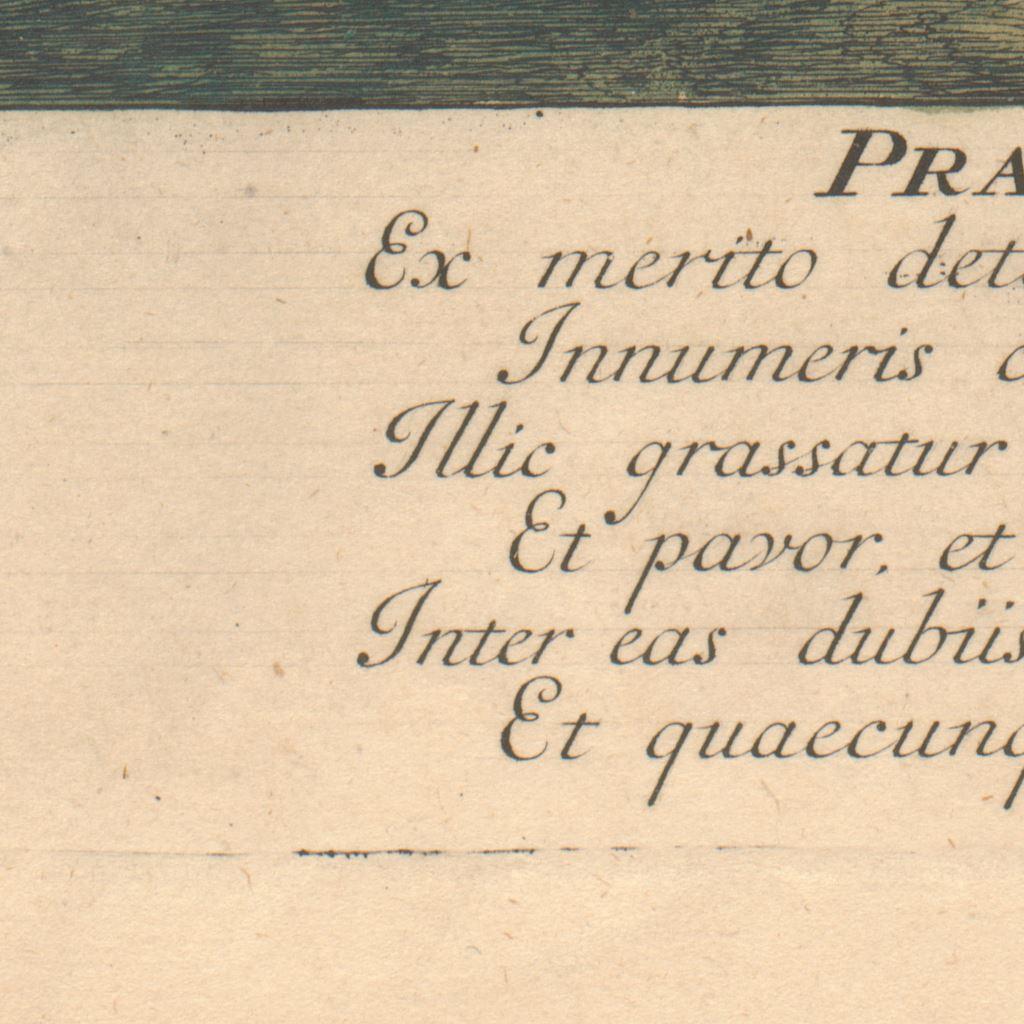 PRA
Ex merito det
Innumeris
Illic grassatur
Et pavor, et
Inter eas dubiis
Et quaecunq